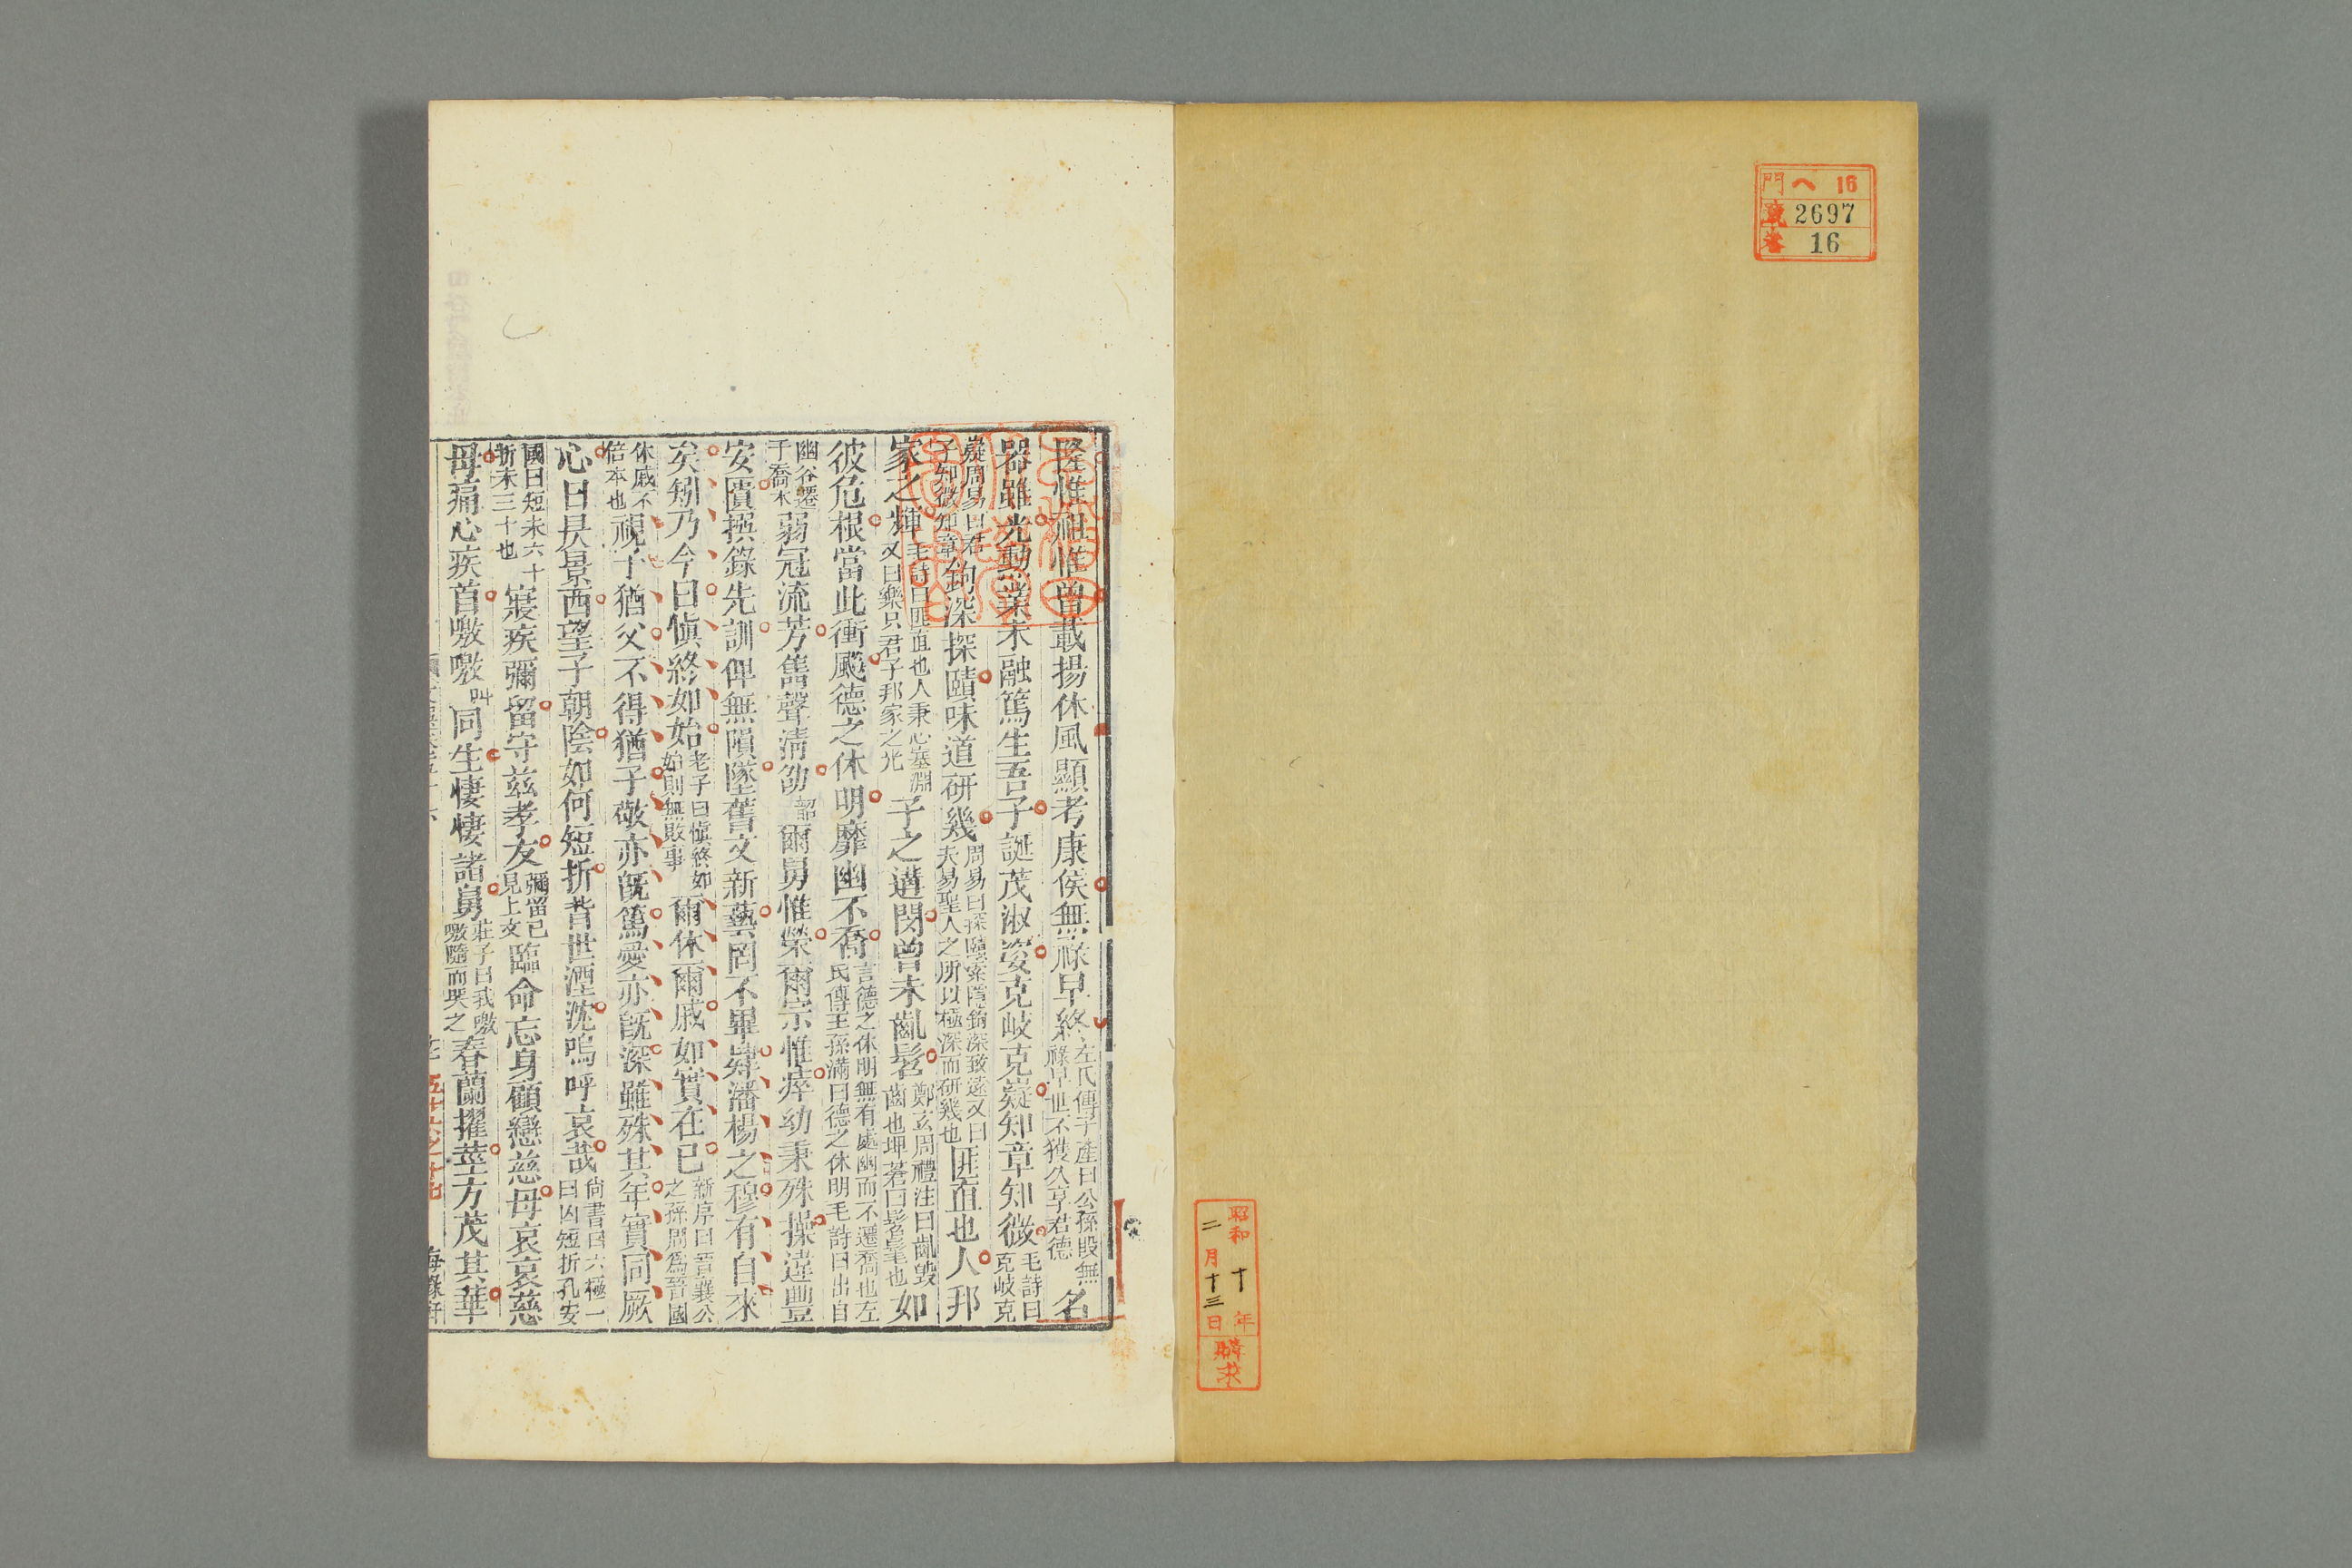 門 ヘ 16
號 2697
卷 16
昭和 十 年
二 月 十三 日
購求
隆惟祖惟曾載揚休風顯考康侯無祿早終左氏傳子產曰公孫段無祿早世不獲久享君德名
器雖光勳業未融篤生吾子誕茂淑姿克岐克嶷知章知微毛詩曰克岐克
嶷周易曰君子知微知章鉤深探賾味道研幾周易曰探賾索隱鉤深致遠又曰夫易聖人之所以極深而研幾也匪直也人邦
家之輝毛詩曰匪直也人秉心塞淵又曰樂只君子邦家之光子之遘閔曾未齓髫鄭玄周禮注曰齓毀齒也埤蒼曰髫髦也如
彼危根當此衝飈德之休明靡幽不喬言德之休明無有處幽而不遷喬也左氏傳王孫滿曰德之休明毛詩曰出自
幽谷遷于喬木弱冠流芳雋聲清劭韶爾舅惟榮爾宗惟瘁幼秉殊操違豐
安匱撰錄先訓俾無隕墜舊文新藝罔不畢肄潘楊之穆有自來
矣矧乃今日愼終如始老子曰愼終如始則無敗事爾休爾戚如實在已新序曰晉襄公之孫周爲晉國
休戚不倍本也視予猶父不得猶子敬亦旣篤愛亦旣深雖殊其年實同厥
心日昃景西望子朝陰如何短折背世湮沈嗚呼哀哉尙書曰六極一曰凶短折孔安
國曰短未六十折未三十也寢疾彌留守茲孝友彌留已見上文臨命忘身顧戀慈母哀哀慈
母痛心疾首噭噭叫同生悽悽諸舅莊子曰我噭噭隨而哭之春蘭擢莖方茂其華